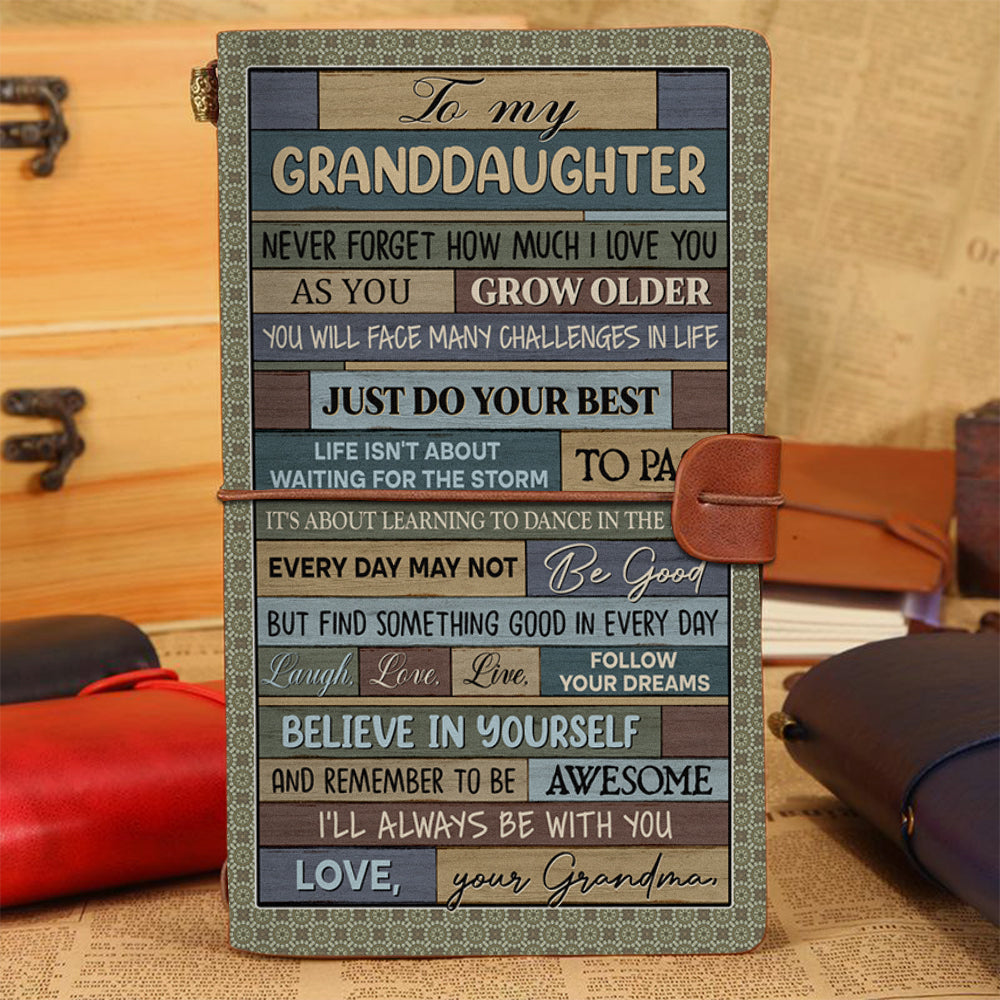 To my
GRANDDAUGHTER
NEVER FORGET HOW MUCH I LOVE YOU
AS YOU GROW OLDER
YOU WILL FACE MANY CHALLENGES IN LIFE
JUST DO YOUR BEST
LIFE ISN'T ABOUT
WAITING FOR THE STORM TO PA
IT'S ABOUT LEARNING TO DANCE IN THE
EVERY DAY MAY NOT Be Good
BUT FIND SOMETHING GOOD IN EVERY DAY
Laugh, Love, Live, FOLLOW
YOUR DREAMS
BELIEVE IN YOURSELF
AND REMEMBER TO BE AWESOME
I'LL ALWAYS BE WITH YOU
LOVE, your Grandma,